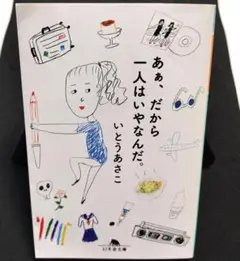 あぁ、だから
一人はいやなんだ。
いとうあさこ
幻冬舎文庫